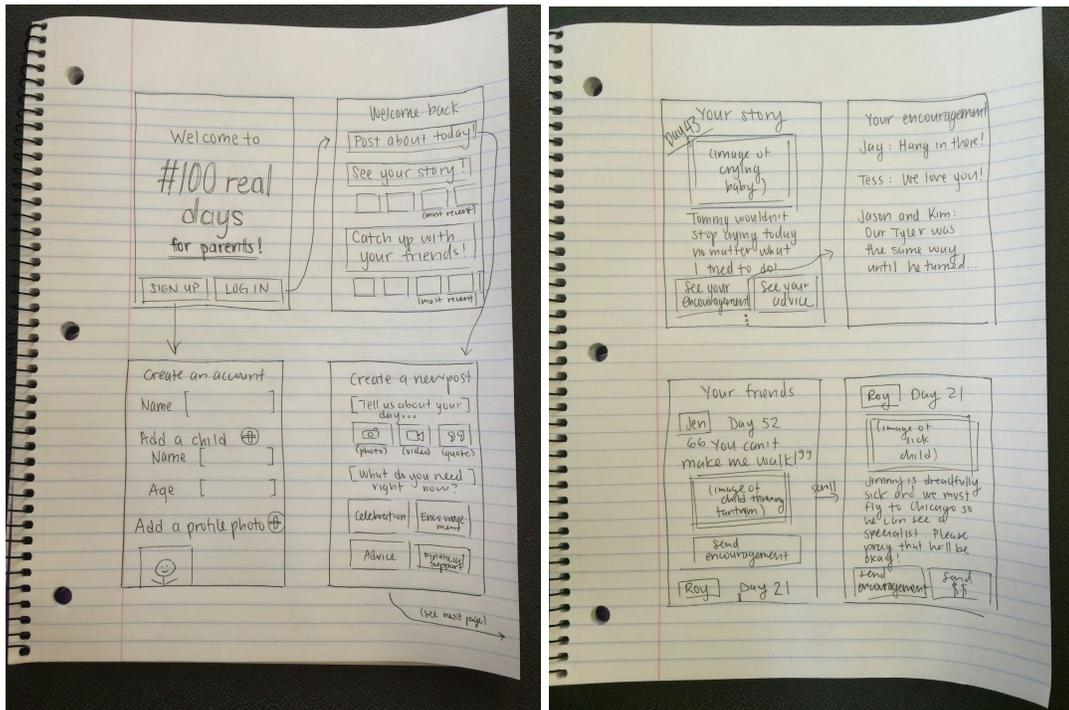 Welcome to
#100 real
days
for parents!
SIGN UP
LOG IN
Welcome back
Post about today!
See your story!
(most recent)
Catch up with
your friends!
(most recent)
Create an account
Name [ ]
Add a child
Name [ ]
Age [ ]
Add a profile photo
Create a new post
[Tell us about your]
day...
(photo)
(video)
(quote)
[What do you need]
right now?
Celebration
Encourage-
ment
Advice
Financial
Support
(see next page)
Your story
Day 43
(image of
crying
baby)
Tommy wouldn't
stop crying today
no matter what
I tried to do!
See your
encouragement
See your
advice
Your encouragement
Jay: Hang in there!
Tess: We love you!
Jason and Kim:
Our Tyler was
the same way
until he turned...
Your friends
Jen Day 52
"You can't
make me walk!"
(image of
child throwing
tantrum)
send
encouragement
Roy Day 21
scroll
Roy Day 21
(image of
sick
child)
Jimmy is dreadfully
sick and we must
fly to Chicago so
we can see a
specialist. Please
pray that he'll be
okay!
send
encouragement
Send
$$